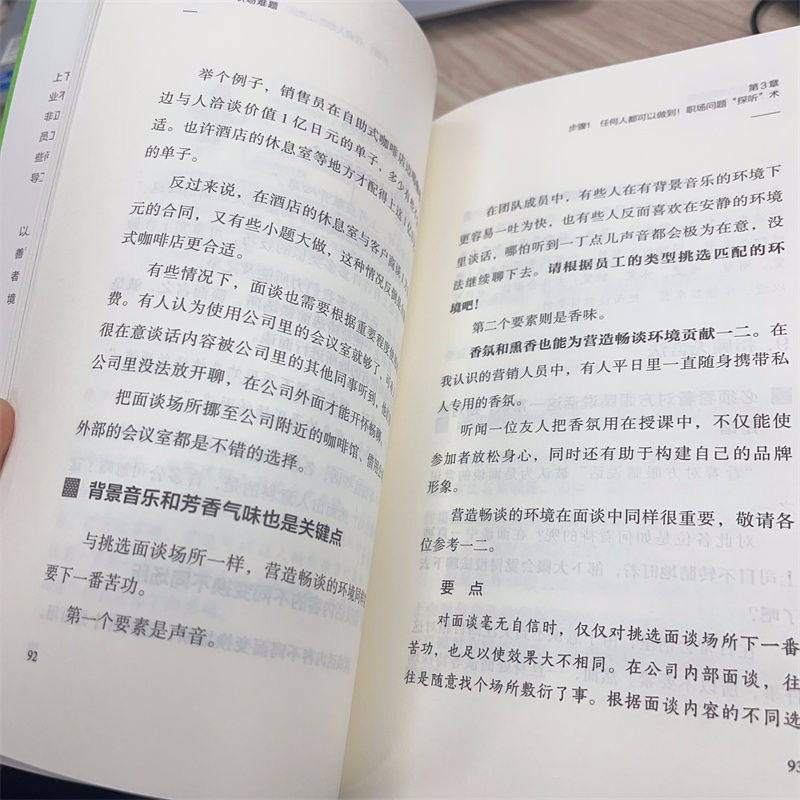 职场难题
举个例子，销售员在自助式咖啡店
边与人洽谈价值1亿日元的单子，多少有
适。也许酒店的休息室等地方才配得上这1亿
的单子。
反过来说，在酒店的休息室与客户
元的合同，又有些小题大做，这种情况反
式咖啡店更合适。
有些情况下，面谈也需要根据重要程度
费。有人认为使用公司里的会议室就够了，
很在意谈话内容被公司里的其他同事听到，
公司里没法放开聊，在公司外面才能开怀畅
把面谈场所挪至公司附近的咖啡馆、借用
外部的会议室都是不错的选择。
背景音乐和芳香气味也是关键点
与挑选面谈场所一样，营造畅谈的环境同样
要下一番苦功。
第一个要素是声音。
92
上下
业不
非正
员工
些
导
以
善
者
境
第3章
步骤1 任何人都可以做到！职场问题“探听”术
在团队成员中，有些人在有背景音乐的环境下
更容易一吐为快，也有些人反而喜欢在安静的环境
里谈话，哪怕听到一丁点儿声音都会极为在意，没
法继续聊下去。请根据员工的类型挑选匹配的环
境吧！
第二个要素则是香味。
香氛和熏香也能为营造畅谈环境贡献一二。在
我认识的营销人员中，有人平日里一直随身携带私
人专用的香氛。
听闻一位友人把香氛用在授课中，不仅能使
参加者放松身心，同时还有助于构建自己的品牌
形象。
营造畅谈的环境在面谈中同样很重要，敬请各
位参考一二。
要 点
对面谈毫无自信时，仅仅对挑选面谈场所下一番
苦功，也足以使效果大不相同。在公司内部面谈，往
往是随意找个场所敷衍了事。根据面谈内容的不同选
93